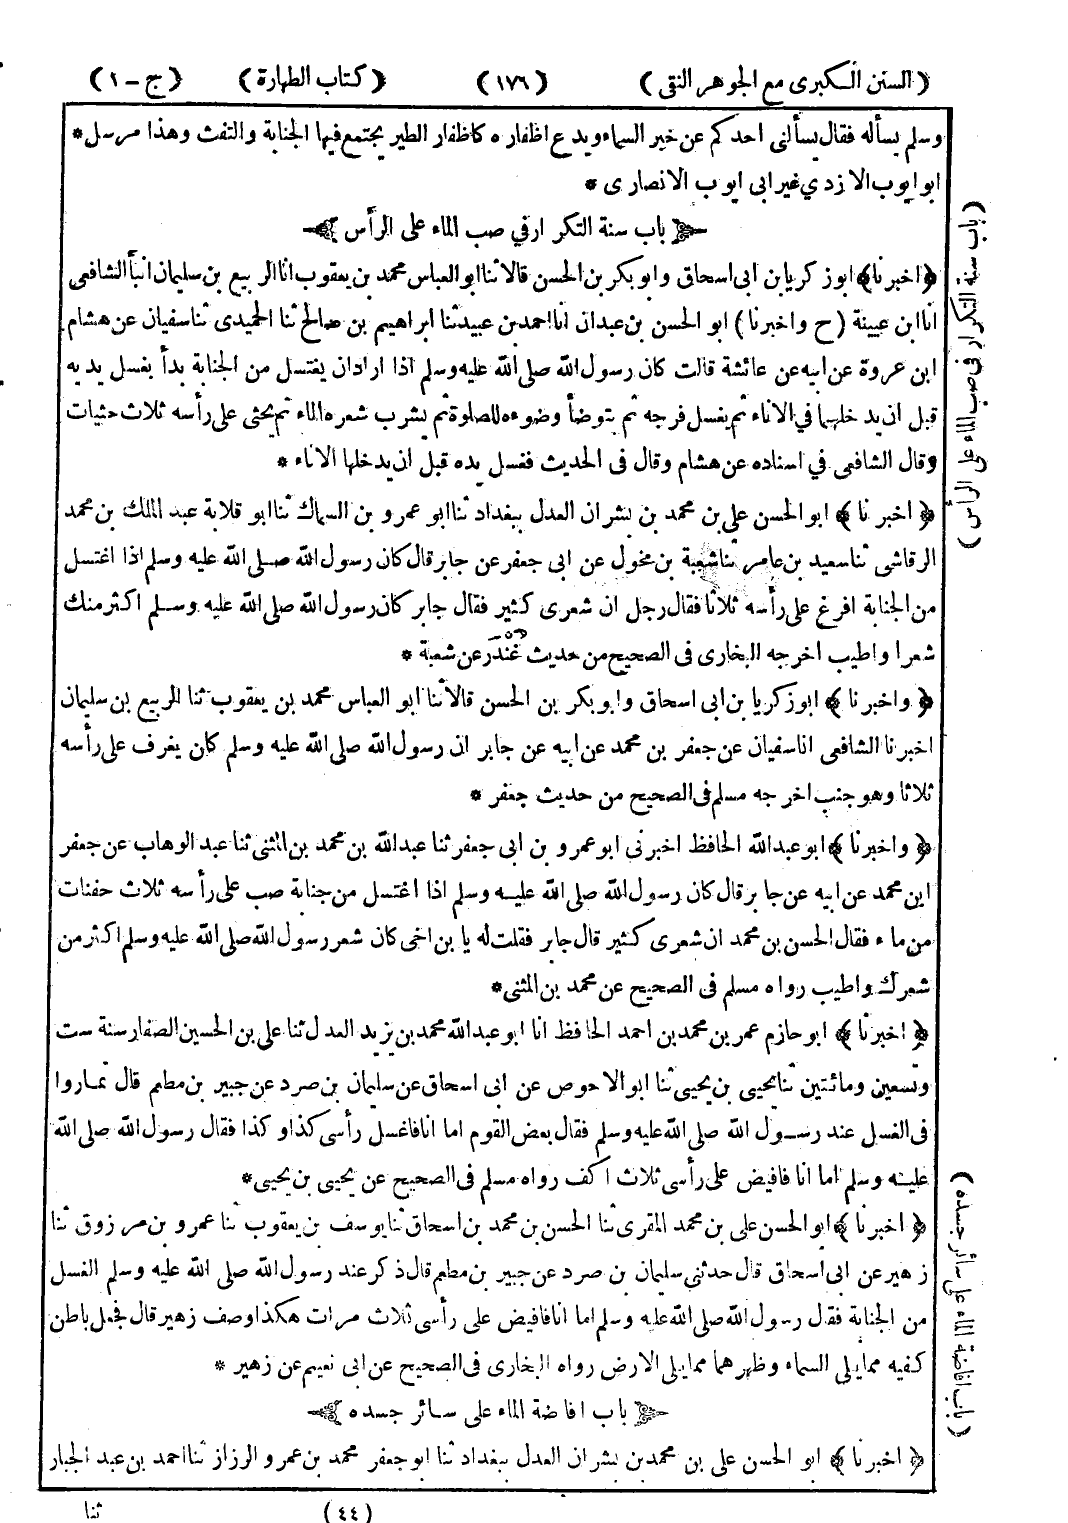 (السنن الكبرى مع الجوهر النقى) (١٧٦) (كتاب الطهارة) (ج - ١)
وسلم يسأله فقال يسألنى احدكم عن خبر السماء ويدع اظفاره كاظفار الطير يجتمع فيها الجنابة والتفث وهذا مرسل *
ابو ايوب الازدي غير ابى ايوب الانصارى *
﴿باب سنة التكرار في صب الماء على الرأس﴾
﴿اخبرنا﴾ ابو زكريا بن ابى اسحاق وابو بكر بن الحسن قالا ثنا ابو العباس محمد بن يعقوب انا الربيع بن سليمان انبأ الشافعى
انا ابن عيينة (ح واخبرنا) ابو الحسن بن عبدان انا احمد بن عبيد ثنا ابراهيم بن صالح ثنا الحميدى ثنا سفيان عن هشام
ابن عروة عن ابيه عن عائشة قالت كان رسول الله صلى الله عليه وسلم اذا اراد ان يغتسل من الجنابة بدأ بغسل يديه
قبل ان يدخلهما في الاناء ثم يغسل فرجه ثم يتوضأ وضوءه للصلوة ثم يشرب شعره الماء ثم يحثى على رأسه ثلاث حثيات
وقال الشافعى في اسناده عن هشام وقال فى الحديث فغسل يده قبل ان يدخلها الاناء *
﴿اخبرنا﴾ ابو الحسن على بن محمد بن بشران العدل ببغداد ثنا ابو عمرو بن السماك ثنا ابو قلابة عبد الملك بن محمد
الرقاشى ثنا سعيد بن عامر ثنا شعبة بن مخول عن ابى جعفر عن جابر قال كان رسول الله صلى الله عليه وسلم اذا اغتسل
من الجنابة افرغ على رأسه ثلاثا فقال رجل ان شعرى كثير فقال جابر كان رسول الله صلى الله عليه وسلم اكثر منك
شعرا واطيب اخرجه البخارى فى الصحيح من حديث غندر عن شعبة *
﴿واخبرنا﴾ ابو زكريا بن ابى اسحاق وابو بكر بن الحسن قالا ثنا ابو العباس محمد بن يعقوب ثنا الربيع بن سليمان
اخبرنا الشافعى انا سفيان عن جعفر بن محمد عن ابيه عن جابر ان رسول الله صلى الله عليه وسلم كان يغرف على رأسه
ثلاثا وهو جنب اخرجه مسلم فى الصحيح من حديث جعفر *
﴿واخبرنا﴾ ابو عبد الله الحافظ اخبرنى ابو عمرو بن ابى جعفر ثنا عبد الله بن محمد بن المثنى ثنا عبد الوهاب عن جعفر
ابن محمد عن ابيه عن جابر قال كان رسول الله صلى الله عليه وسلم اذا اغتسل من جنابة صب على رأسه ثلاث حفنات
من ماء فقال الحسن بن محمد ان شعرى كثير قال جابر فقلت له يا بن اخى كان شعر رسول الله صلى الله عليه وسلم اكثر من
شعرك واطيب رواه مسلم فى الصحيح عن محمد بن المثنى *
﴿اخبرنا﴾ ابو حازم عمر بن محمد بن احمد الحافظ انا ابو عبد الله محمد بن يزيد العدل ثنا على بن الحسين الصفار سنة ست
وتسعين ومائتين ثنا يحيى بن يحيى ثنا ابو الاحوص عن ابى اسحاق عن سليمان بن صرد عن جبير بن مطعم قال تماروا
فى الغسل عند رسول الله صلى الله عليه وسلم فقال بعض القوم اما انا فاغسل رأسى كذا وكذا فقال رسول الله صلى الله
عليه وسلم اما انا فافيض على رأسى ثلاث اكف رواه مسلم فى الصحيح عن يحيى بن يحيى *
﴿اخبرنا﴾ ابو الحسن على بن محمد المقرى ثنا الحسن بن محمد بن اسحاق ثنا يوسف بن يعقوب ثنا عمرو بن مرزوق ثنا
زهير عن ابى اسحاق قال حدثنى سليمان بن صرد عن جبير بن مطعم قال ذكر عند رسول الله صلى الله عليه وسلم الغسل
من الجنابة فقال رسول الله صلى الله عليه وسلم اما انا فافيض على رأسى ثلاث مرات هكذا وصف زهير قال فجعل باطن
كفيه مما يلى السماء وظهرهما مما يلى الارض رواه البخارى فى الصحيح عن ابى نعيم عن زهير *
﴿باب افاضة الماء على سائر جسده﴾
﴿اخبرنا﴾ ابو الحسن على بن محمد بن بشران العدل ببغداد ثنا ابو جعفر محمد بن عمرو الرزاز ثنا احمد بن عبد الجبار
(٤٤) ثنا
(باب سنة التكرار فى صب الماء على الرأس)
(باب افاضة الماء على سائر جسده)